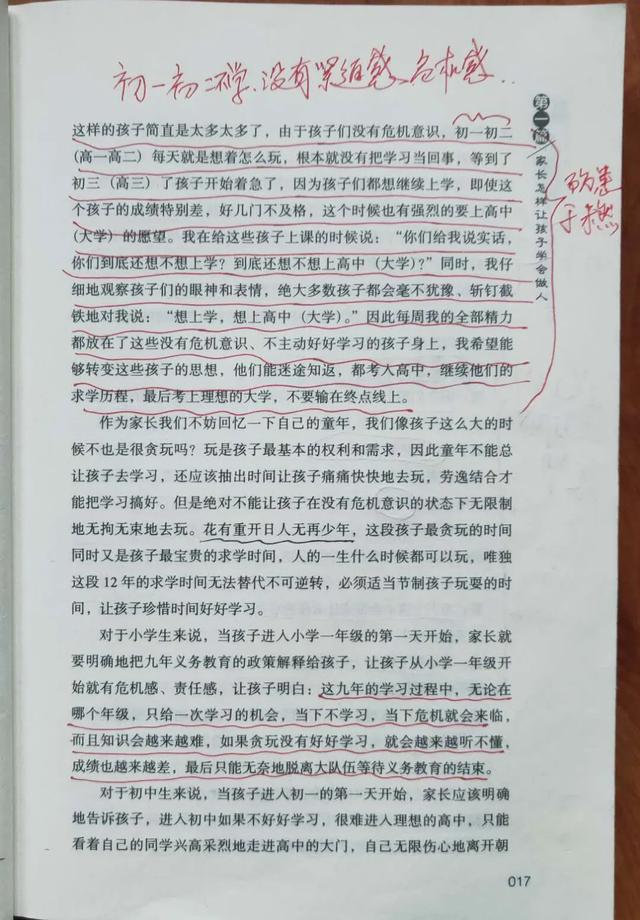 初一初二不学、没有紧迫感、危机感..
这样的孩子简直是太多太多了，由于孩子们没有危机意识，初一初二
（高一高二）每天就是想着怎么玩，根本就没有把学习当回事，等到了
初三（高三）了孩子开始着急了，因为孩子们都想继续上学，即使这
个孩子的成绩特别差，好几门不及格，这个时候也有强烈的要上高中
（大学）的愿望。我在给这些孩子上课的时候说：“你们给我说实话，
你们到底还想不想上学？到底还想不想上高中（大学）？”同时，我仔
细地观察孩子们的眼神和表情，绝大多数孩子都会毫不犹豫、斩钉截
铁地对我说：“想上学，想上高中（大学）。”因此每周我的全部精力
都放在了这些没有危机意识、不主动好好学习的孩子身上，我希望能
够转变这些孩子的思想，他们能迷途知返，都考入高中，继续他们的
求学历程，最后考上理想的大学，不要输在终点线上。
作为家长我们不妨回忆一下自己的童年，我们像孩子这么大的时
候不也是很贪玩吗？玩是孩子最基本的权利和需求，因此童年不能总
让孩子去学习，还应该抽出时间让孩子痛痛快快地去玩，劳逸结合才
能把学习搞好。但是绝对不能让孩子在没有危机意识的状态下无限制
地无拘无束地去玩。花有重开日人无再少年，这段孩子最贪玩的时间
同时又是孩子最宝贵的求学时间，人的一生什么时候都可以玩，唯独
这段 12 年的求学时间无法替代不可逆转，必须适当节制孩子玩耍的时
间，让孩子珍惜时间好好学习。
对于小学生来说，当孩子进入小学一年级的第一天开始，家长就
要明确地把九年义务教育的政策解释给孩子，让孩子从小学一年级开
始就有危机感、责任感，让孩子明白：这九年的学习过程中，无论在
哪个年级，只给一次学习的机会，当下不学习，当下危机就会来临，
而且知识会越来越难，如果贪玩没有好好学习，就会越来越听不懂，
成绩也越来越差，最后只能无奈地脱离大队伍等待义务教育的结束。
对于初中生来说，当孩子进入初一的第一天开始，家长应该明确
地告诉孩子，进入初中如果不好好学习，很难进入理想的高中，只能
看着自己的同学兴高采烈地走进高中的大门，自己无限伤心地离开朝
第一篇
家长怎样让孩子学会做人
于未燃
017